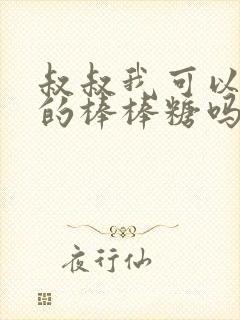 叔叔我可以
的棒棒糖吗
夜行仙